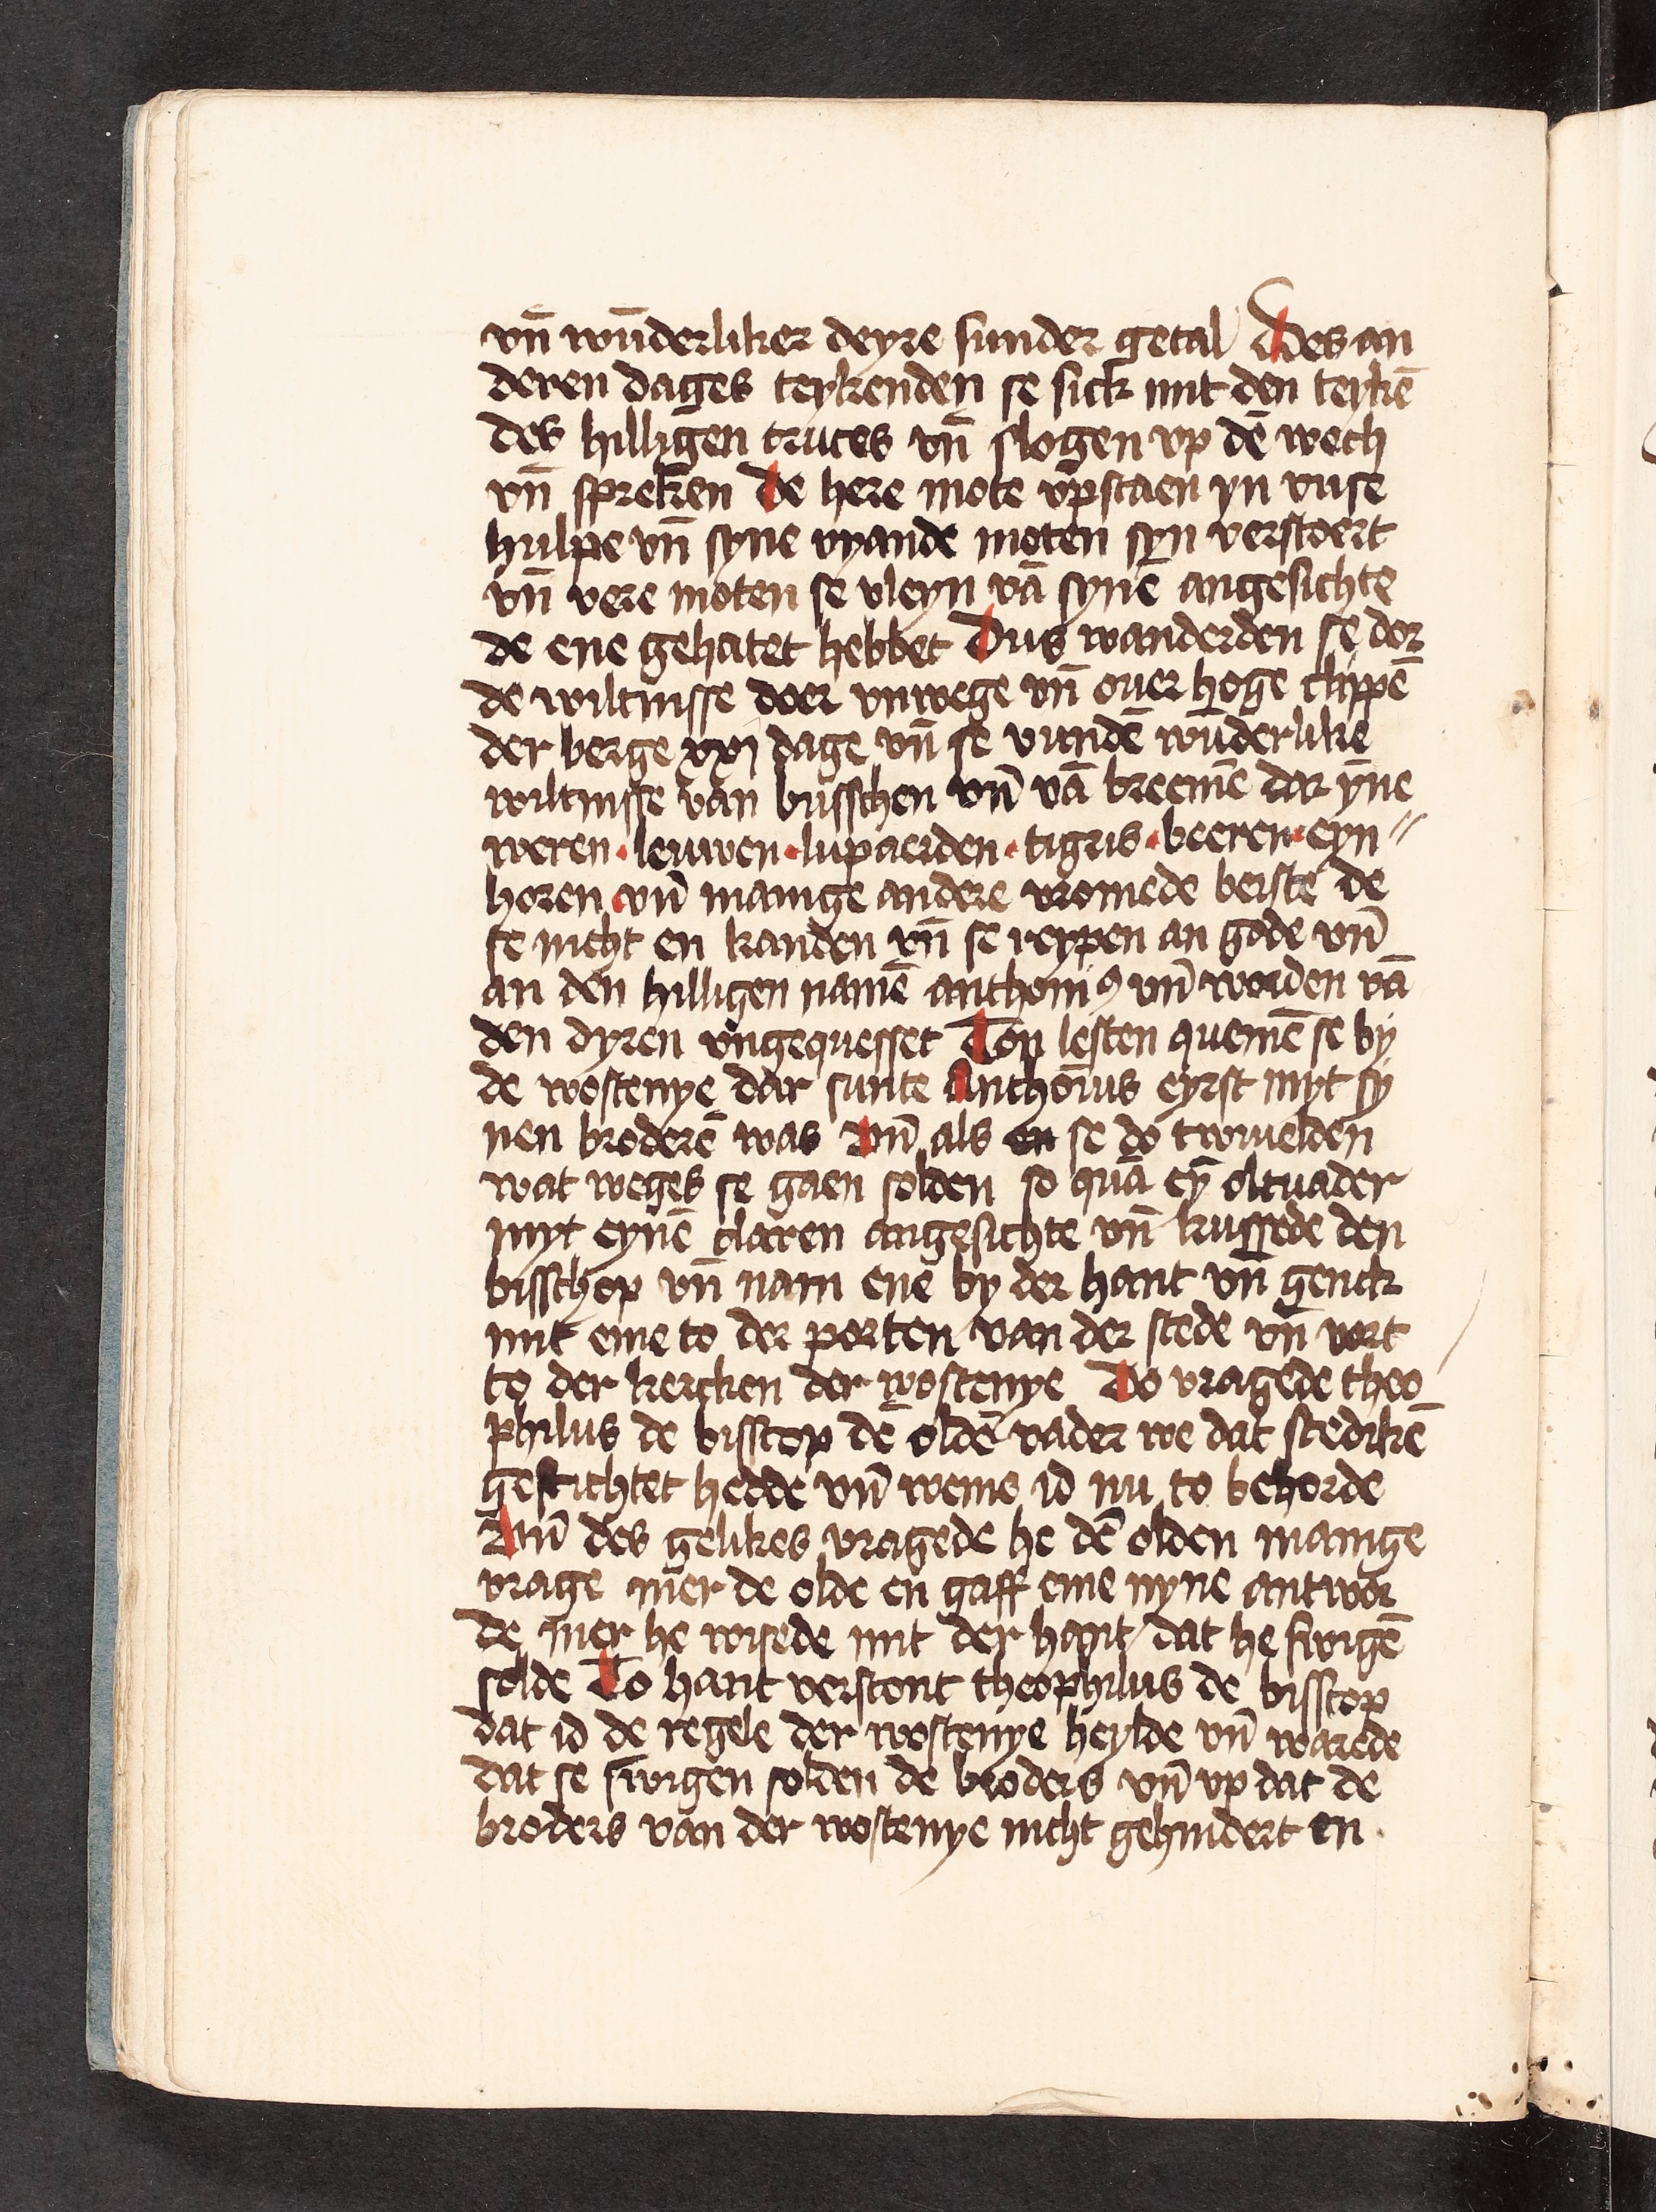 vn̄ wūderliker deyre sunder getal Des an
deren dages teykenden se sick mit den teykē
des hilligen cruces vn̄ slogen vp dē wech
vn̄ spreken De here mote vpstaen yn vnse
hulpe vn̄ syne vyande moten syn verstoert
vn̄ vere moten se vleyn vā synē angesichte
de ene gehatet hebbet Dus wanderden se dor
de wiltnisse doer vnwege vn̄ ouer hoge clippē
der berge xxj dage vn̄ se vundē wūderlike
wiltnisse van busschen vn̄ vā breemē dar ȳne
weren · leuwen · lupaerden · tigris · beeren · eyn〃
horen · vn̄ mannige andere vromede beiste de
se nicht en kanden vn̄ se reypen an gode vn̄
an den hilligen namē anthoniꝯ vn̄ worden vā
den dyren vngequesset Ton lesten quemē se by
de wostenye dar sunte Anthoīus eyrst myt sy
nen broderē was Vn̄ als en se do twiuelden
wat weges se gaen solden so quā eȳ oltuader
myt eynē claren angesichte vn̄ kussede den
bisschop vn̄ nam enē by der hant vn̄ genck
mit eme to der porten van der stede vn̄ vort
to der kercken der wostenye Do vragede theo
philus de bisscop dē oldē vader we dat stedikē
gestichtet hedde vn̄ weme id nu to behorde
Vn̄ des gelikes vragede he dē olden mannige
vrage mer de olde en gaff eme nyne antwor
de mer he wisede mit der hant dat he swigē
solde To hant verstont theophilus de bisscop
dat id de regele der wostenye heylde vn̄ warede
dat se swigen solden de broders vn̄ vp dat de
broders van der wostenye nicht gehindert en